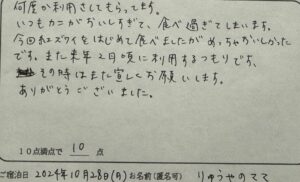 何度か利用させてもらってます。
いつもカニがおいしすぎて、食べ過ぎてしまいます。
今回紅ズワイをはじめて食べましたがめっちゃおいしかった
です。また来年2月頃に利用するつもりです。
その時はまた宜しくお願いします。
ありがとうございました。
10点満点で 10 点
ご宿泊日 2024年10月28日(月) お名前(匿名可) りゅうやのてて